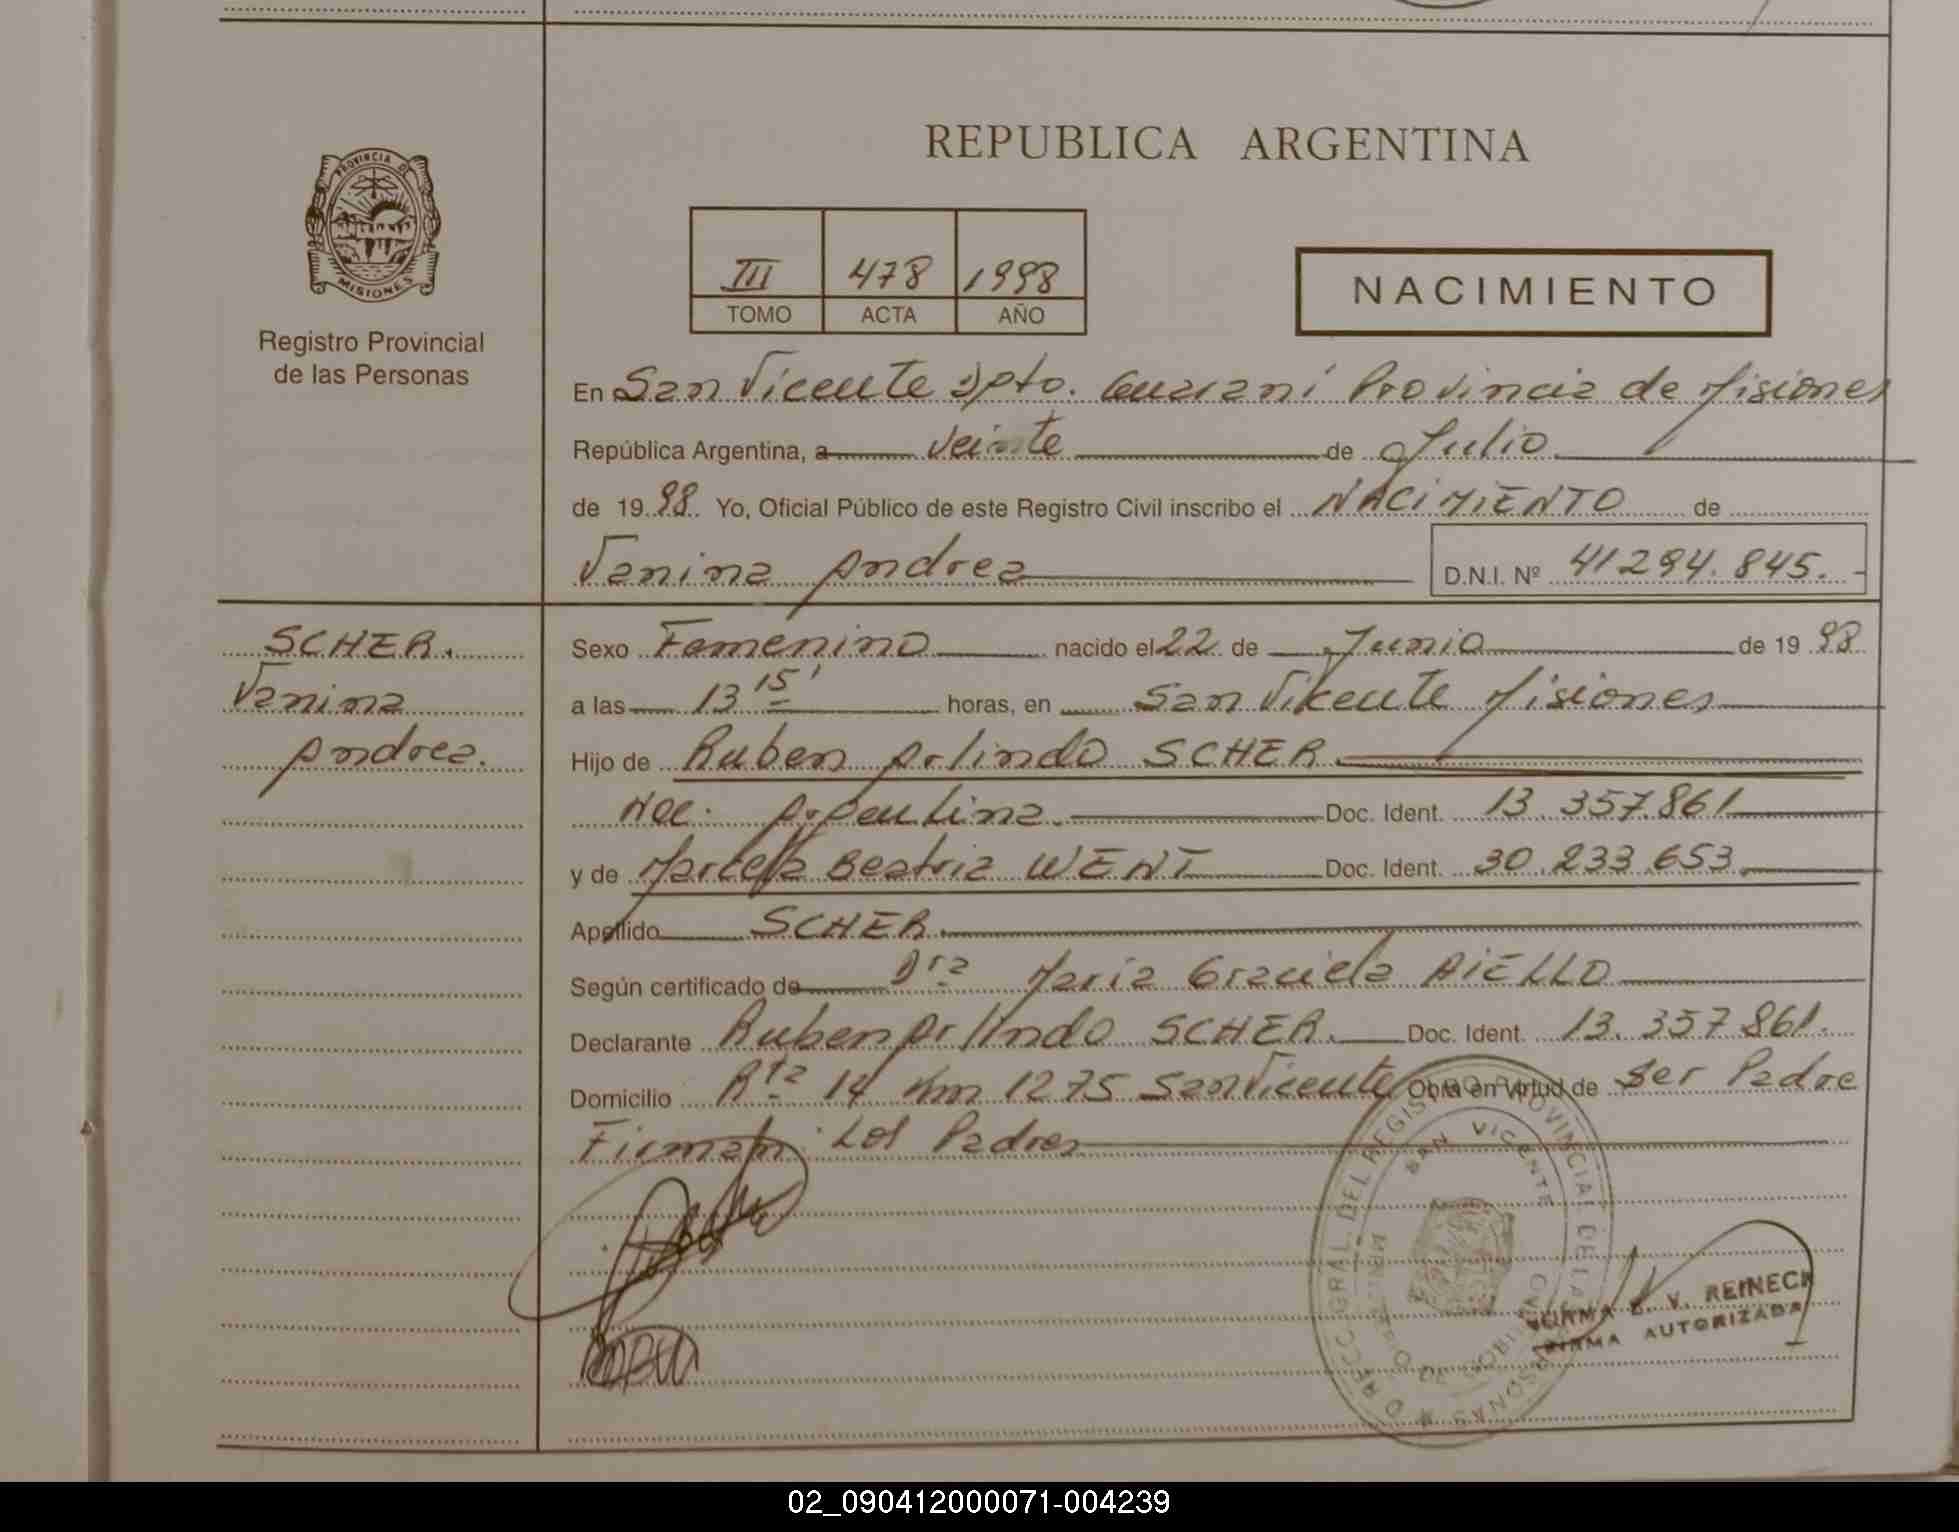 REPUBLICA ARGENTINA
PROVINCIA D
MISIONES
Registro Provincial
de las Personas
III 478 1998
TOMO ACTA AÑO
NACIMIENTO
En San Vicente Dpto. Guaraní Provincia de Misiones
República Argentina, a veinte de Julio
de 1998 Yo, Oficial Público de este Registro Civil inscribo el NACIMIENTO de
Vanina Andrea D.N.I. Nº 41294.845.
SCHER.
Vanina
Andrea.
Sexo Femenino nacido el 22 de Junio de 1998
a las 13 15' horas, en San Vicente Misiones
Hijo de Ruben Arlindo SCHER
Nac. Argentina. Doc. Ident. 13.357.861
y de Marcela Beatriz WENT Doc. Ident. 30.233.653.
Apellido SCHER.
Según certificado de Dra Maria Graciela AiELLO
Declarante Ruben Arlindo SCHER. Doc. Ident. 13.357.861.
Domicilio Rta 14 Km 1275 San Vicente Obra en virtud de ser Padre
Firman: Los Padres
SAN VICENTE
V. REINECK
FIRMA AUTORIZADA
02_090412000071-004239